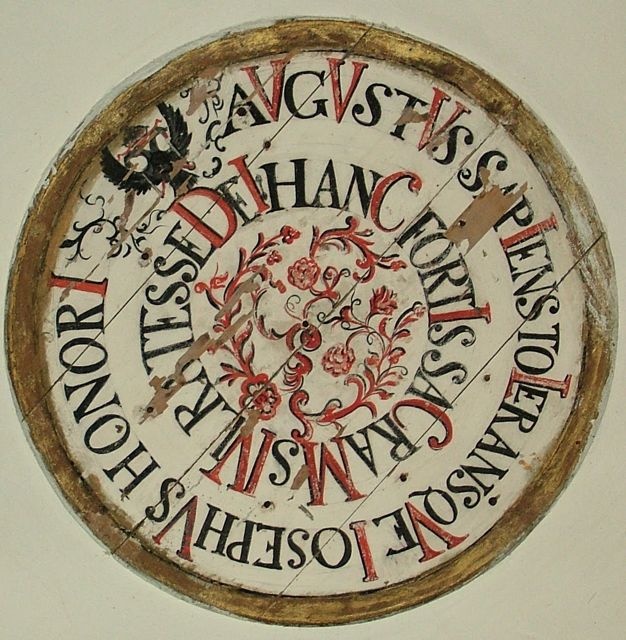 AVGVSTVS SAPIENS TOLERANSQVE IOSEPHVS HONORI
DEI HANC FORTIS SACRAM ESSE